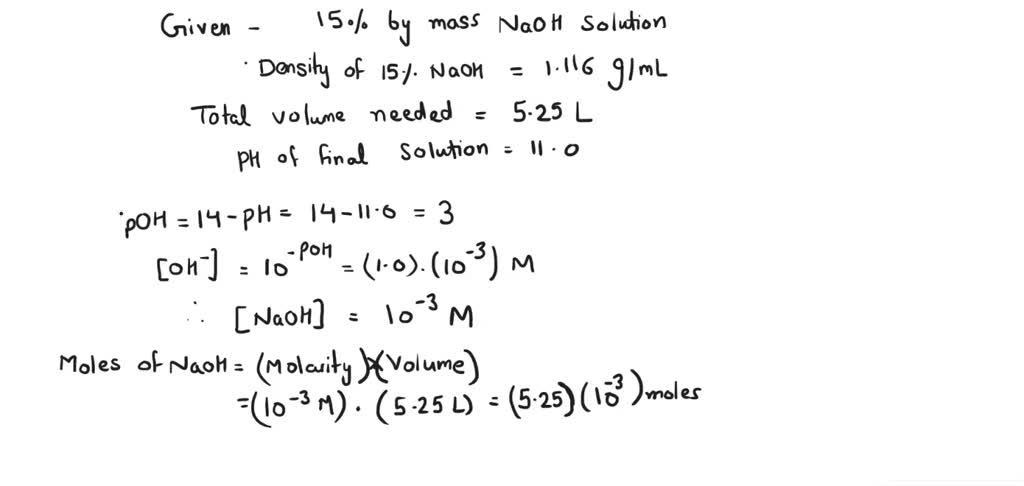 Given - 15% by mass NaOH Solution
Density of 15% NaOH = 1.116 g/mL
Total volume needed = 5.25 L
PH of final Solution = 11.0
pOH = 14 - pH = 14 - 11.0 = 3
[OH⁻] = 10^-POH = (1.0).(10^-3) M
∴ [NaOH] = 10^-3 M
Moles of NaOH = (Molarity)×(Volume)
=(10^-3 M) . (5.25 L) = (5.25)(10^-3) moles